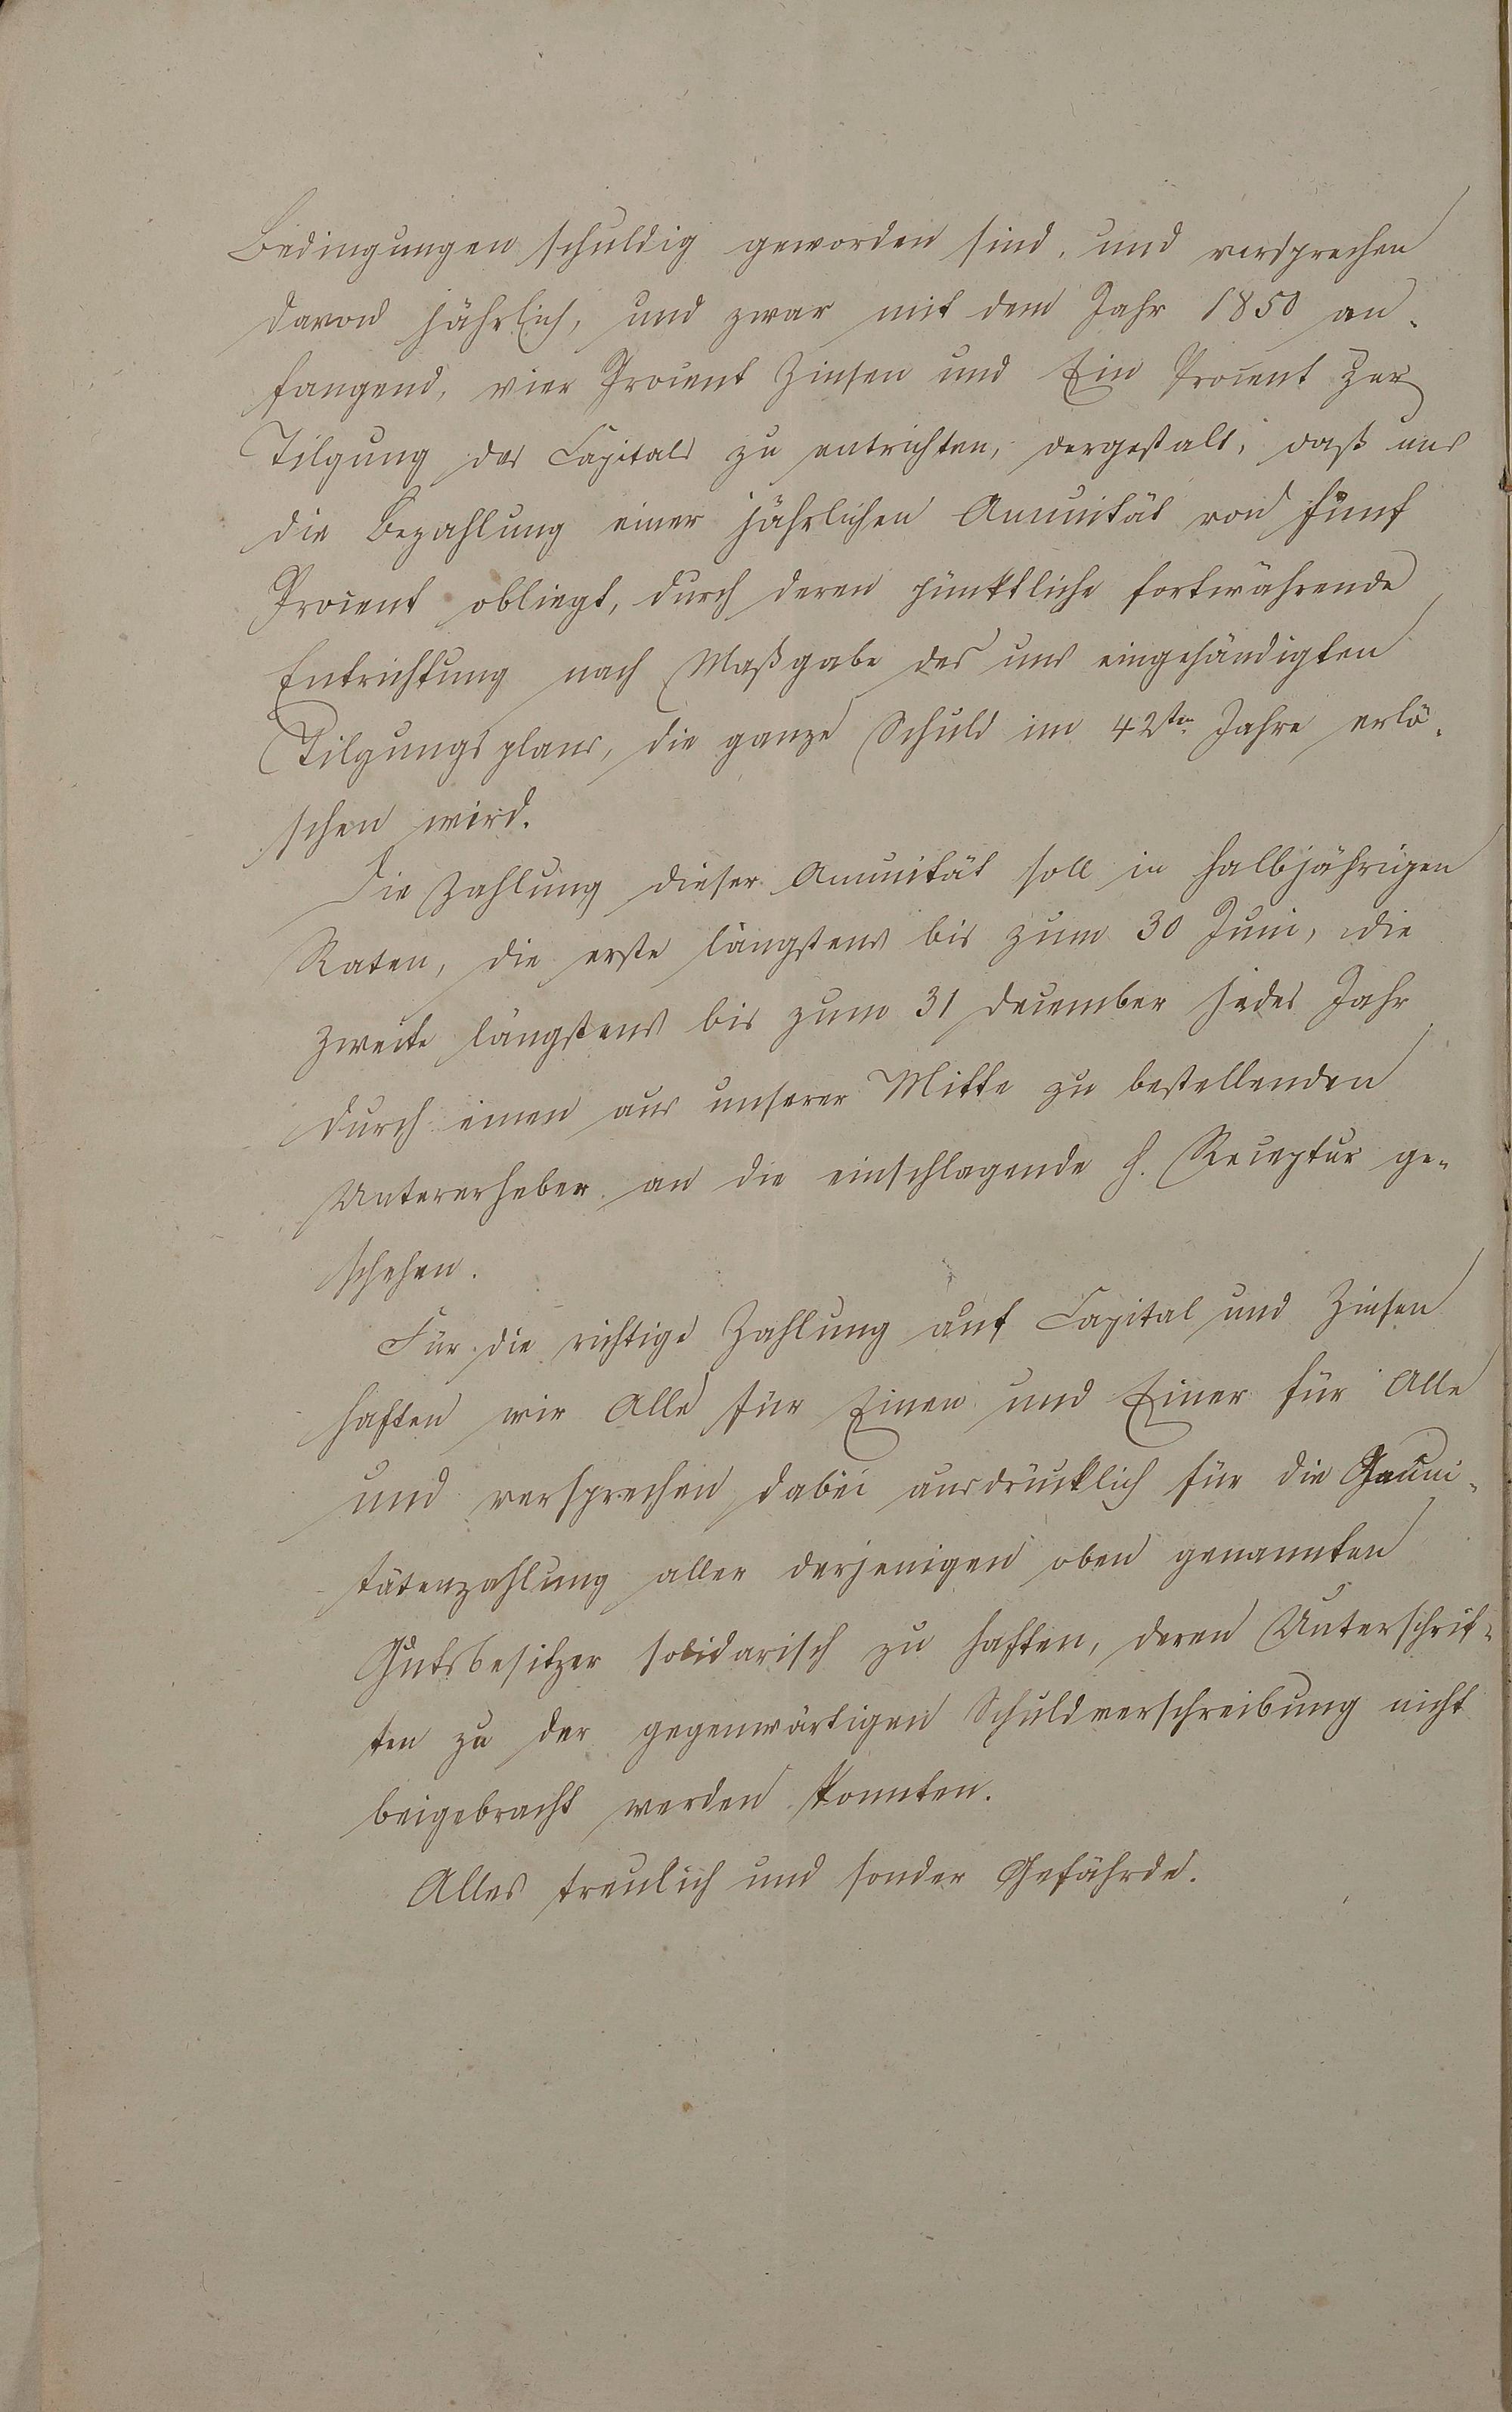 Bedingungen schuldig geworden sind, und versprechen
davon jährlich, und zwar mit dem Jahr 1850 an-
fangend, vier Procent Zinsen und Ein Procent zur
Tilgung des Capitals zu entrichten, dergestalt, daß uns
die Bezahlung einer jährlichen Annuität von fünf
Procent obliegt, durch deren pünktliche fortwährende
Entrichtung nach Maßgabe des uns eingehändigten
Tilgungsplans, die ganze Schuld im 42ten Jahre erlö-
schen wird.
Die Zahlung dieser Annuität soll in halbjährigen
Raten, die erste längstens bis zum 30 Juni, die
zweite längstens bis zum 31 December jedes Jahr
durch einen aus unserer Mitte zu bestellenden
Untererheber an die einschlagende H. Receptur ge-
schehen.
Für die richtige Zahlung auf Capital und Zinsen
haften wir Alle für Einen und Einer für Alle
und versprechen dabei ausdrücklich für die
tätenzahlung aller derjenigen oben genannten
Gutsbesitzer solidarisch zu haften, deren Unterschrif-
ten zu der gegenwärtigen Schuldverschreibung nicht
beigebracht werden konnten.
Alles treulich und sonder Gefährde.